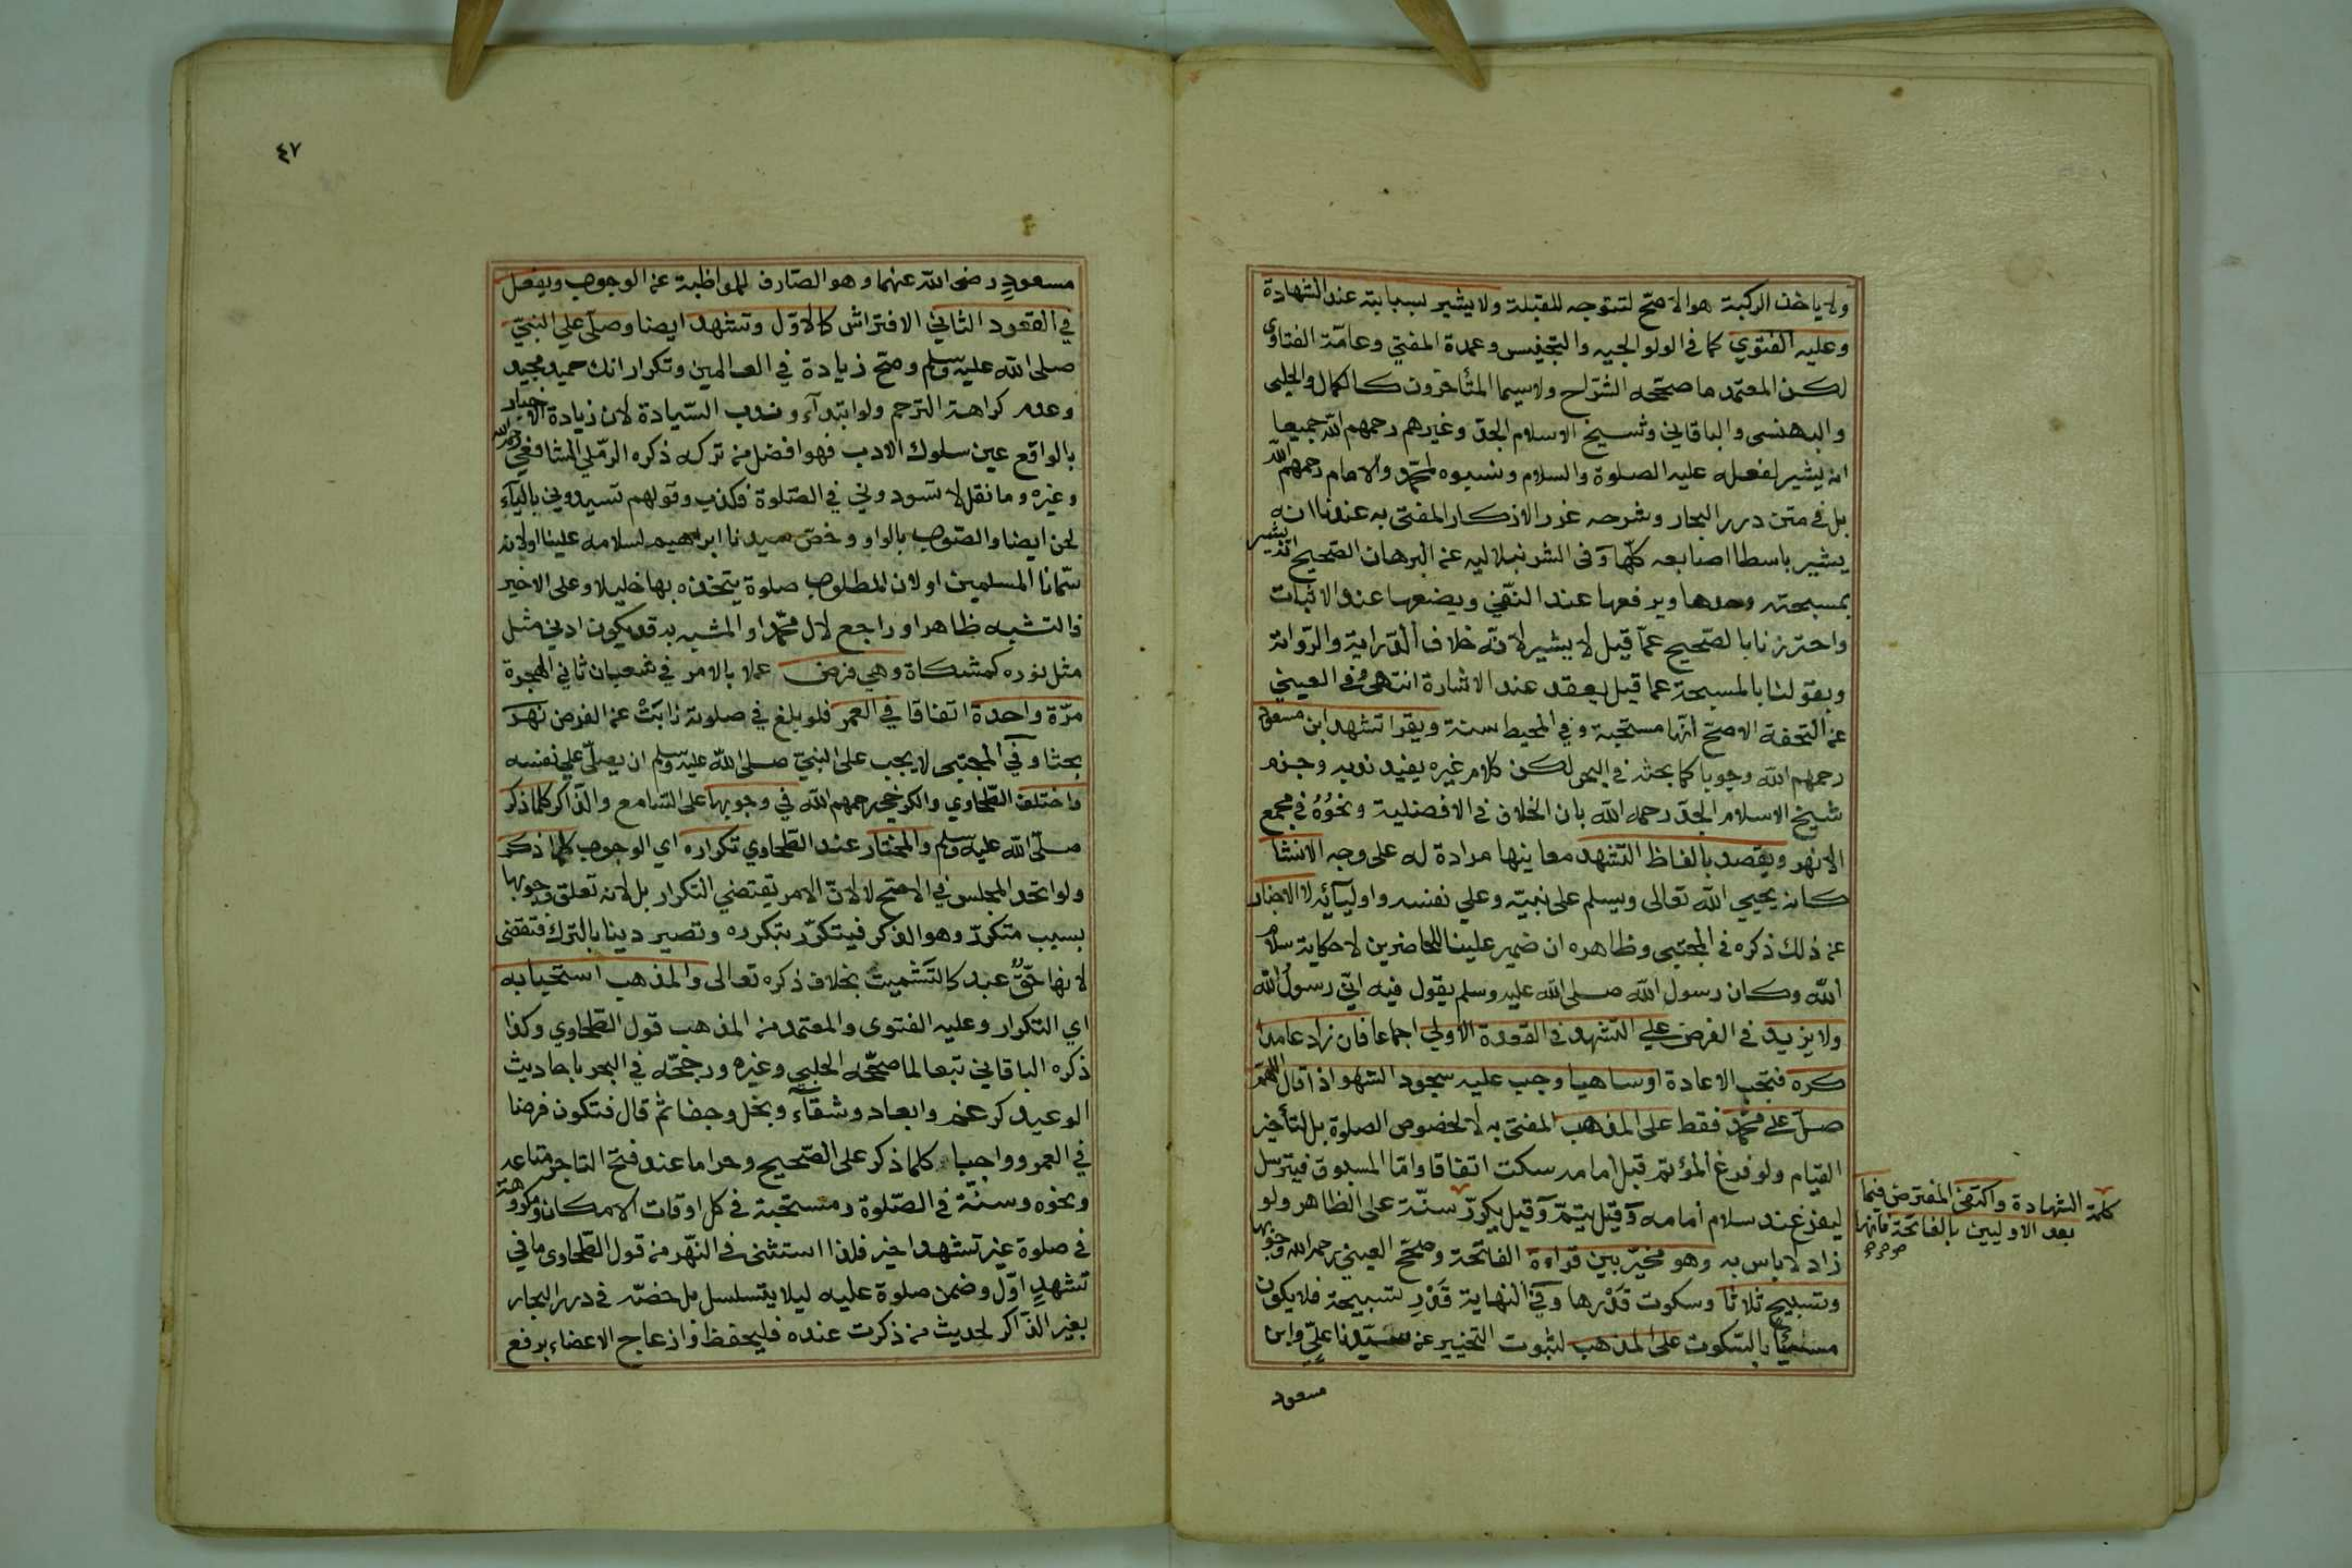 ولا ياخذ الركبة هو الاصحّ لتتوجه للقبلة ولا يشير لسبابته عند الشهادة
وعليه الفتوي كما في الولوالجيه والتجنيس وعمدة المفتي وعامّة الفتاوى
لكن المعتمد ما صحّحه الشرّاح ولاسيما المتأخرون كالكمال والحلبى
والبهنسى والباقاني وشيخ الاسلام الجدّ وغيرهم رحمهم الله جميعا
انه يشير لفعله عليه الصلوة والسلام ونسبوه لمحمّد والامام رحمهم الله
بل في متن درر البحار وشرحه غرر الاذكار المفتى به عندنا انه
يشير باسطا اصابعه كلّها وفى الشرنبلاليه عن البرهان الصّحيح انه يشير
بمسبحته وحدها ويرفعها عند النّفى ويضعها عند الاثبات
واحترزنا بالصّحيح عمّا قيل لا يشير لانّه خلاف الدّراية والرّواية
وبقولنا بالمسبحة عما قيل يعقد عند الاشارة انتهى وفى العيني
عن التحفة الاصحّ انّها مستحبة وفي المحيط سنة ويقرا تشهد ابن مسعود
رحمهم الله وجوبا كما بحثه في البحر لكن كلام غيره يفيد ندبه وجزم
شيخ الاسلام الجدّ رحمه الله بان الخلاف في الافضلية ونحوُهُ في مجمع
الانهر ويقصد بالفاظ التشهد معاينها مرادة له على وجه الانشا
كانه يحيي الله تعالى ويسلم على نبيّه وعلي نفسه واوليآئه لا الاخبار
عن ذلك ذكره في المجتبى وظاهره ان ضمير علينا للحاضرين لا حكاية سلام
الله وكان رسول الله صلى الله عليه وسلم يقول فيه انّي رسولُ الله
ولا يزيد في الفرض علي التشهد في القعدة الاولي اجماعا فان زاد عامدا
كره فتجب الاعادة او ساهيا وجب عليه سجود السّهو اذا قال اللّهمّ
صلّ على محمّد فقط على المذهب المفتى به لا لخصوص الصلوة بل لتأخير
القيام ولو فرغ المؤتم قبل امامه سكت اتفاقا وامّا المسبوق فيترسل
ليفرغ عند سلام أمامه وقيل يتمّ وقيل يكرّر سنّة على الظاهر ولو
زاد لا باس به وهو مخيّر بين قراءة الفاتحة وصحّح العيني رحمه الله وجوبها
وتسبيح ثلاثا وسكوت قَدْرها وفي النهاية قَدْرِ تسبيحة فلا يكون
مسيئًا بالسّكوت على المذهب لثبوت التخيير عن سيّدنا عليّ وابن
مسعود
كلمة الشهادة واكتفى المفترض فيما
بعد الاوليين بالفاتحة فانها
٤٧
مسعودِ رضى الله عنهما وهو الصّارف للمواظبة عن الوجوب ويفعل
في القعود الثاني الافتراش كالاوّل وتشهد ايضا وصلّى علي النبيّ
صلى الله عليه وسلم وصحّ زيادة في العالمين وتكرار انك حميد مجيد
وعدم كراهة الترحم ولو ابتدآء وندب السّيادة لان زيادة الاخبار
بالواقع عين سلوك الادب فهو افضل من تركه ذكره الرّملي الشافعي رحمه الله
وغيره وما نقل لا تسودوني في الصّلوة فكذب وقولهم تسيدوني باليآء
لحن ايضا والصّوب بالواو وخصّ سيدنا ابراهيم لسلامه علينا او لانه
سمّانا المسلمين او لان المطلوب صلوة يتخذه بها خليلا وعلى الاخير
فالتشبه ظاهر او راجع لال محمّد او المشبه به قد يكون ادني مثل
مثل نوره كمشكاة وهي فرض عملا بالامر في شعبان ثاني الهجرة
مرّة واحدة اتفاقا في العمر فلو بلغ في صلوته نابَتْ عن الفرض نهر
بحثا وفي المجتبى لا يجب على النبيّ صلى الله عليه وسلم ان يصلّي علي نفسه
واختلف الطّحاوي والكرخي رحمهم الله في وجوبها على السّامع والذّاكر كلما ذكر
صلّى الله عليه وسلم والمختار عند الطّحاوي تكراره اي الوجوب كلما ذكر
ولو اتحد المجلس في الاصحّ لا لانّ الامر يقتضي التكرار بل لانه تعلّق وجوبها
بسبب متكرّر وهو الذكر فيتكرّر بتكرره وتصير دينا بالترك فتقضى
لانها حقّ عبد كالتّشميت بخلاف ذكره تعالى والمذهب استحبابه
اي التكرار وعليه الفتوى والمعتمد من المذهب قول الطّحاوي وكذا
ذكره الباقاني تبعا لما صحّحه الحلبي وغيره ورجّحه في البحر باحاديث
الوعيد كرغم وابعاد وشقآء وبخل وجفا ثمّ قال فتكون فرضا
في العمر وواجبا كلما ذكر على الصّحيح وحراما عند فتح التاجر متاعه
ونحوه وسنّة في الصّلوة ومستحبة في كل اوقات الامكان ومكروهة
في صلوة غير تشهد اخير فلذا استثنى فى النّهر من قول الطّحاوى ما في
تشهدِ اوّل وضمن صلوة عليه ليلا يتسلسل بل خصّه في درر البحار
بغير الذّاكر لحديث من ذكرت عنده فليحفظ وازعاج الاعضاء برفع